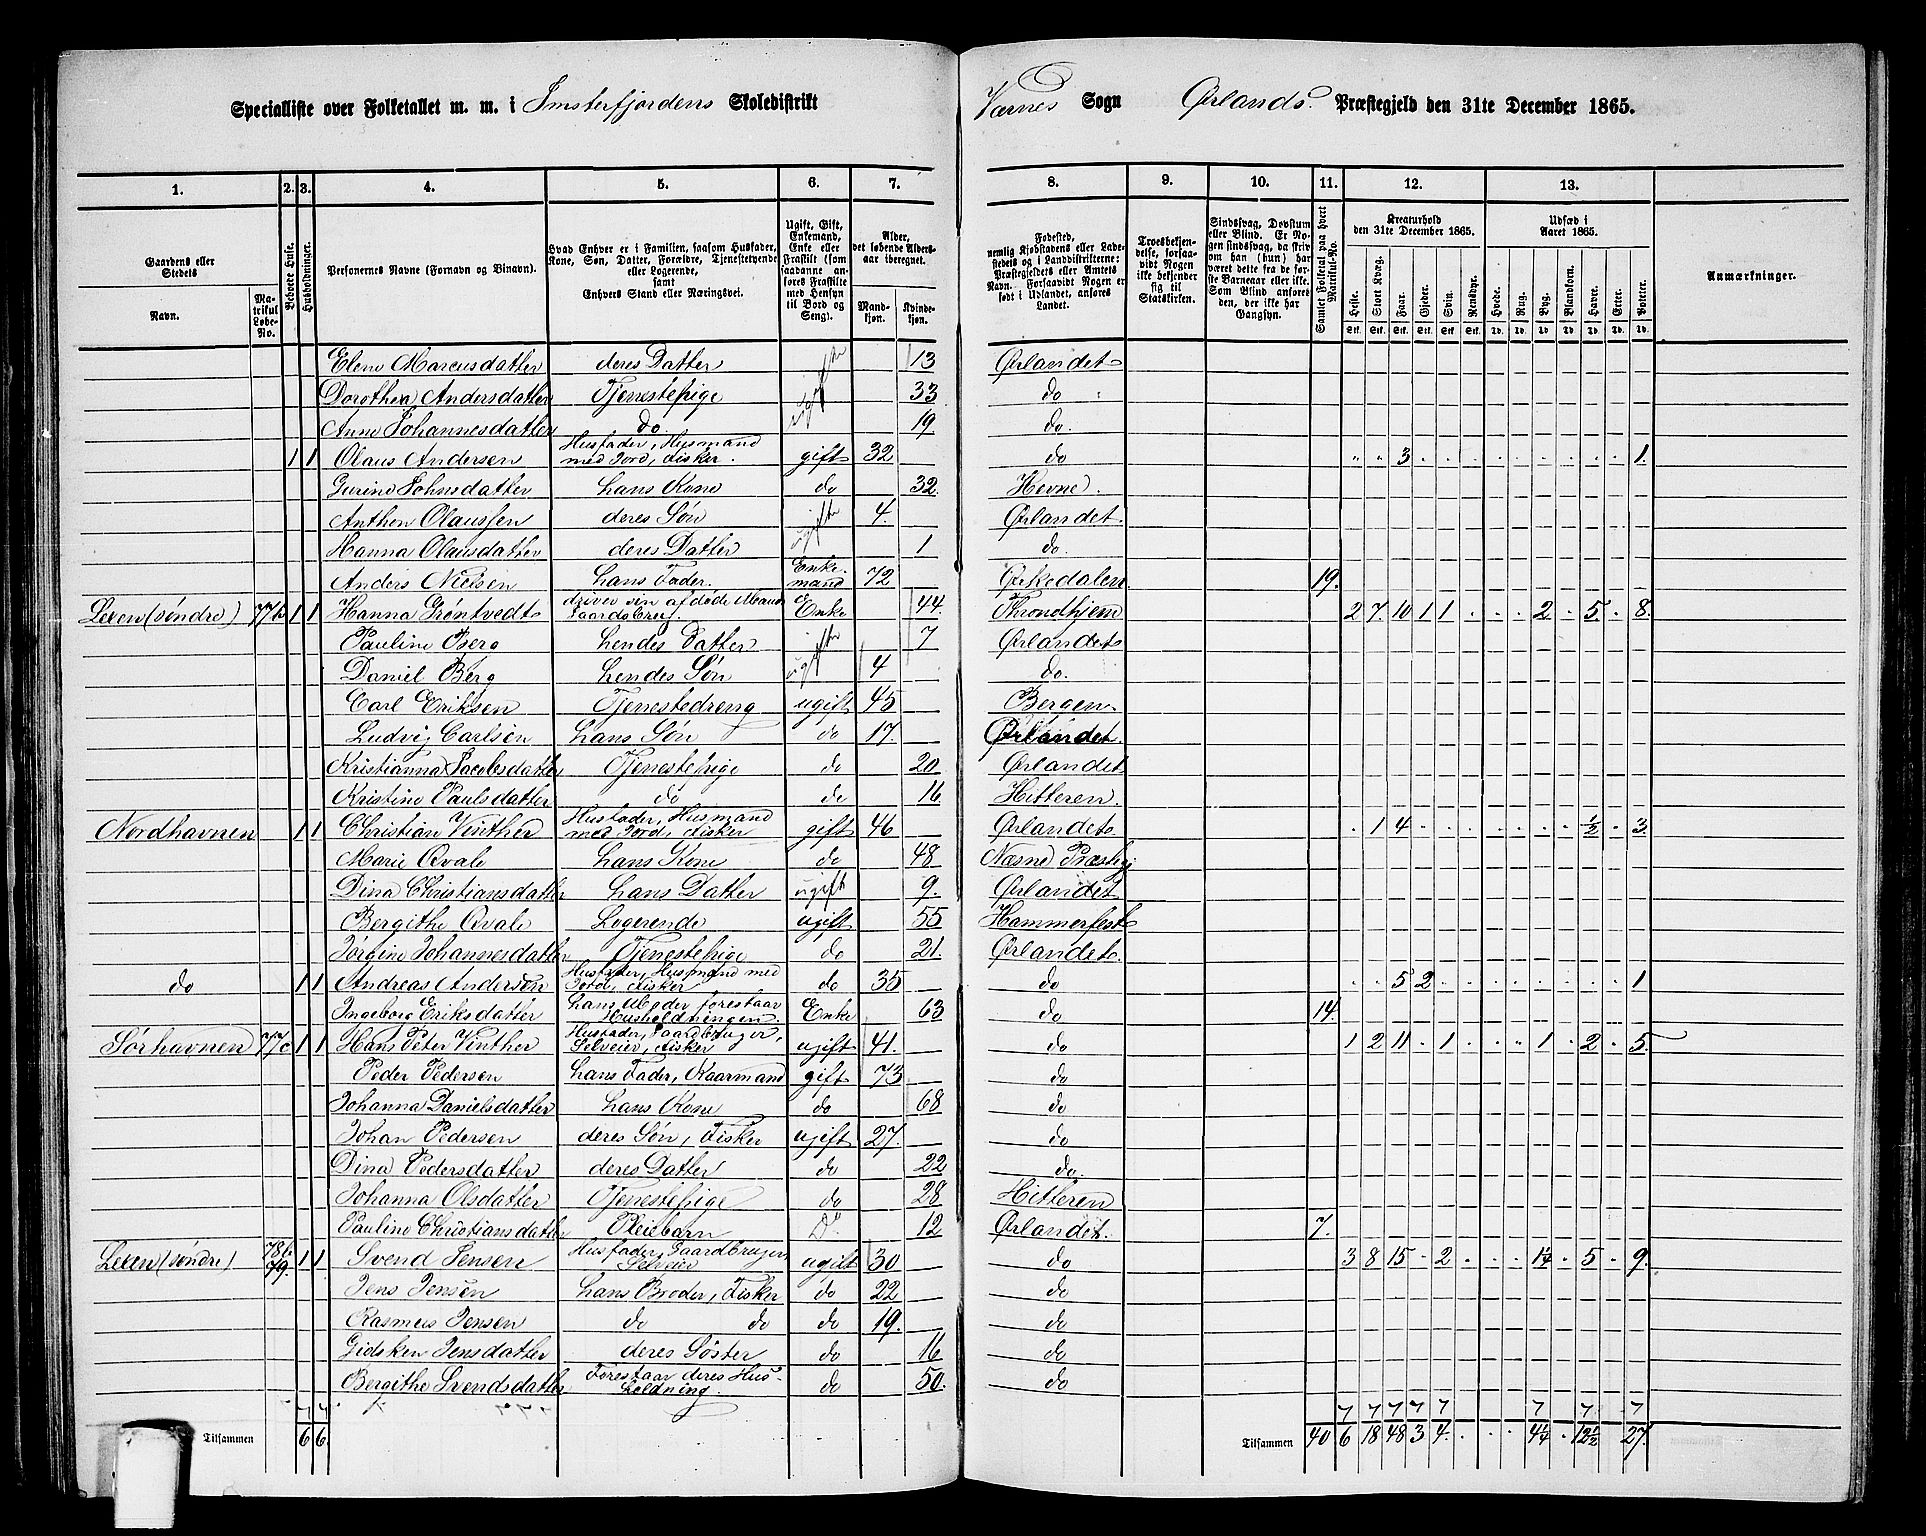 Specialliste over Folketallet m. m. i Imsterfjordens Skoledistrikt Værnes Sogn Ørlands Præstegjeld den 31te December 1865.
1. 2. 3. 4. 5. 6. 7. 8. 9. 10. 11. 12. 13.
Gaardens eller Stedets
Navn.
Matrikul Løbe-No.
Beboede Huse.
Husholdninger.
Personernes Navne (Fornavn og Binavn).
Hvad Enhver er i Familien, saasom Husfader, Kone, Søn, Datter, Forældre, Tjenestetyende eller Logerende, samt Enhvers Stand eller Næringsvei.
Ugift, Gift, Enkemand, Enke eller Fraskilt (som saadanne anføres Fraskilte med Hensyn til Bord og Seng).
Alder, det løbende Alders-aar iberegnet.
Mandkjøn. Kvindekjøn.
Fødested, nemlig Kjøbstadens eller Ladestedets og i Landdistrikterne: Præstegjeldets eller Amtets Navn. Forsaavidt Nogen er født i Udlandet, anføres Landet.
Troesbekjendelse, forsaavidt Nogen ikke bekjender sig til Statskirken.
Sindssvag, Døvstum eller Blind. Er Nogen sindssvag, da skrives om han (hun) har været dette fra de første Barneaar eller ikke. Som Blind anføres den, der ikke har Gangsyn.
Samlet Folketal paa hvert Matrikul-No.
Kreaturhold den 31te December 1865.
Heste. Stort Kvæg. Faar. Gjeder. Sviin. Rensdyr.
Udsæd i Aaret 1865.
Hvede. Rug. Byg. Blandkorn. Havre. Erter. Poteter.
Anmærkninger.
Elene Marcusdatter deres Datter ugifte 13 Ørlandet
Dorothea Andersdatter Tjenestepige 33 do
Anne Johannesdatter do. 19 do.
1 1 Olaus Andersen Husfader, Husmand med Jord, Fisker. gift 32 do 3 1.
Gurine Johnsdatter hans Kone do 32. Hevne.
Anthon Olaussen deres Søn ugifte 4. Ørlandet.
Hanna Olausdatter deres Datter 1 do.
Anders Nielsen hans Fader. Enkemand 72 Ørkedalen 19.
Leren (søndre) 77b 1 1 Hanna Grøntvedt driver sin afdøde Mands Gaardsbrug. Enke 44. Throndhjem 2 7. 10 1 1 2 5. 8.
Pauline Berg hendes Datter ugifte 7 Ørlandet
Daniel Berg hendes Søn 4 do.
Carl Eriksen Tjenestedreng ugift 45 Bergen.
Ludvig Carlsen hans Søn do 17. Ørlandet.
Kristianna Jacobsdatter Tjenestepige do 20 Ørlandet
Kristine Paulsdatter do do 16 Hitteren.
Nordhavnen 1 1 Christian Vinther Husfader, Husmand med Jord, Fisker gift 46 Ørlandet. 1 4 ½ 3.
Marie Qvale hans Kone do 48 Næsne Præstegj
Dina Christiansdatter hans Datter ugift 9. Ørlandet
Bergithe Qvale Logerende ugift 55 Hammerfest
Jørgine Johannesdatter Tjenestepige do 21. Ørlandet.
do 1 1 Andreas Andersen Husfader, Husmand med Jord, Fisker do 35 do 5 2 1
Ingeborg Eriksdatter hans Moder forestaar Husholdningen. Enke 63 do 14.
Sørhavnen 77c 1 1 Hans Peter Vinther Husfader, Gaardbruger, Selveier, Fisker ugift 41. do 1 2 11 1 1 2 5.
Peder Pedersen hans Fader, Kaarmand gift 73 do
Johanna Danielsdatter hans Kone do 68 do
Johan Pedersen deres Søn, Fisker ugift 27. do
Dina Pedersdatter deres Datter do 22 do.
Johanna Olsdatter Tjenestepige do 28 Hitteren
Pauline Christiansdatter Pleiebarn Do 12 Ørlandet. 7.
Leren (søndre) 78b 79. 1 1 Svend Jensen Husfader, Gaardbruger Selveier ugift 30 do 3 8 15 2 1¼ 5 9.
Jens Jensen hans Broder, Fisker do 22 do
Rasmus Jensen do do do 19. do
Gidsken Jensdatter deres Søster do 16 do
Bergithe Svendsdatter Forestaar deres Husholdning. do 50. do
Tilsammen 6 6. Tilsammen 40 6 18 48 3 4. 4¼ 12½ 27.